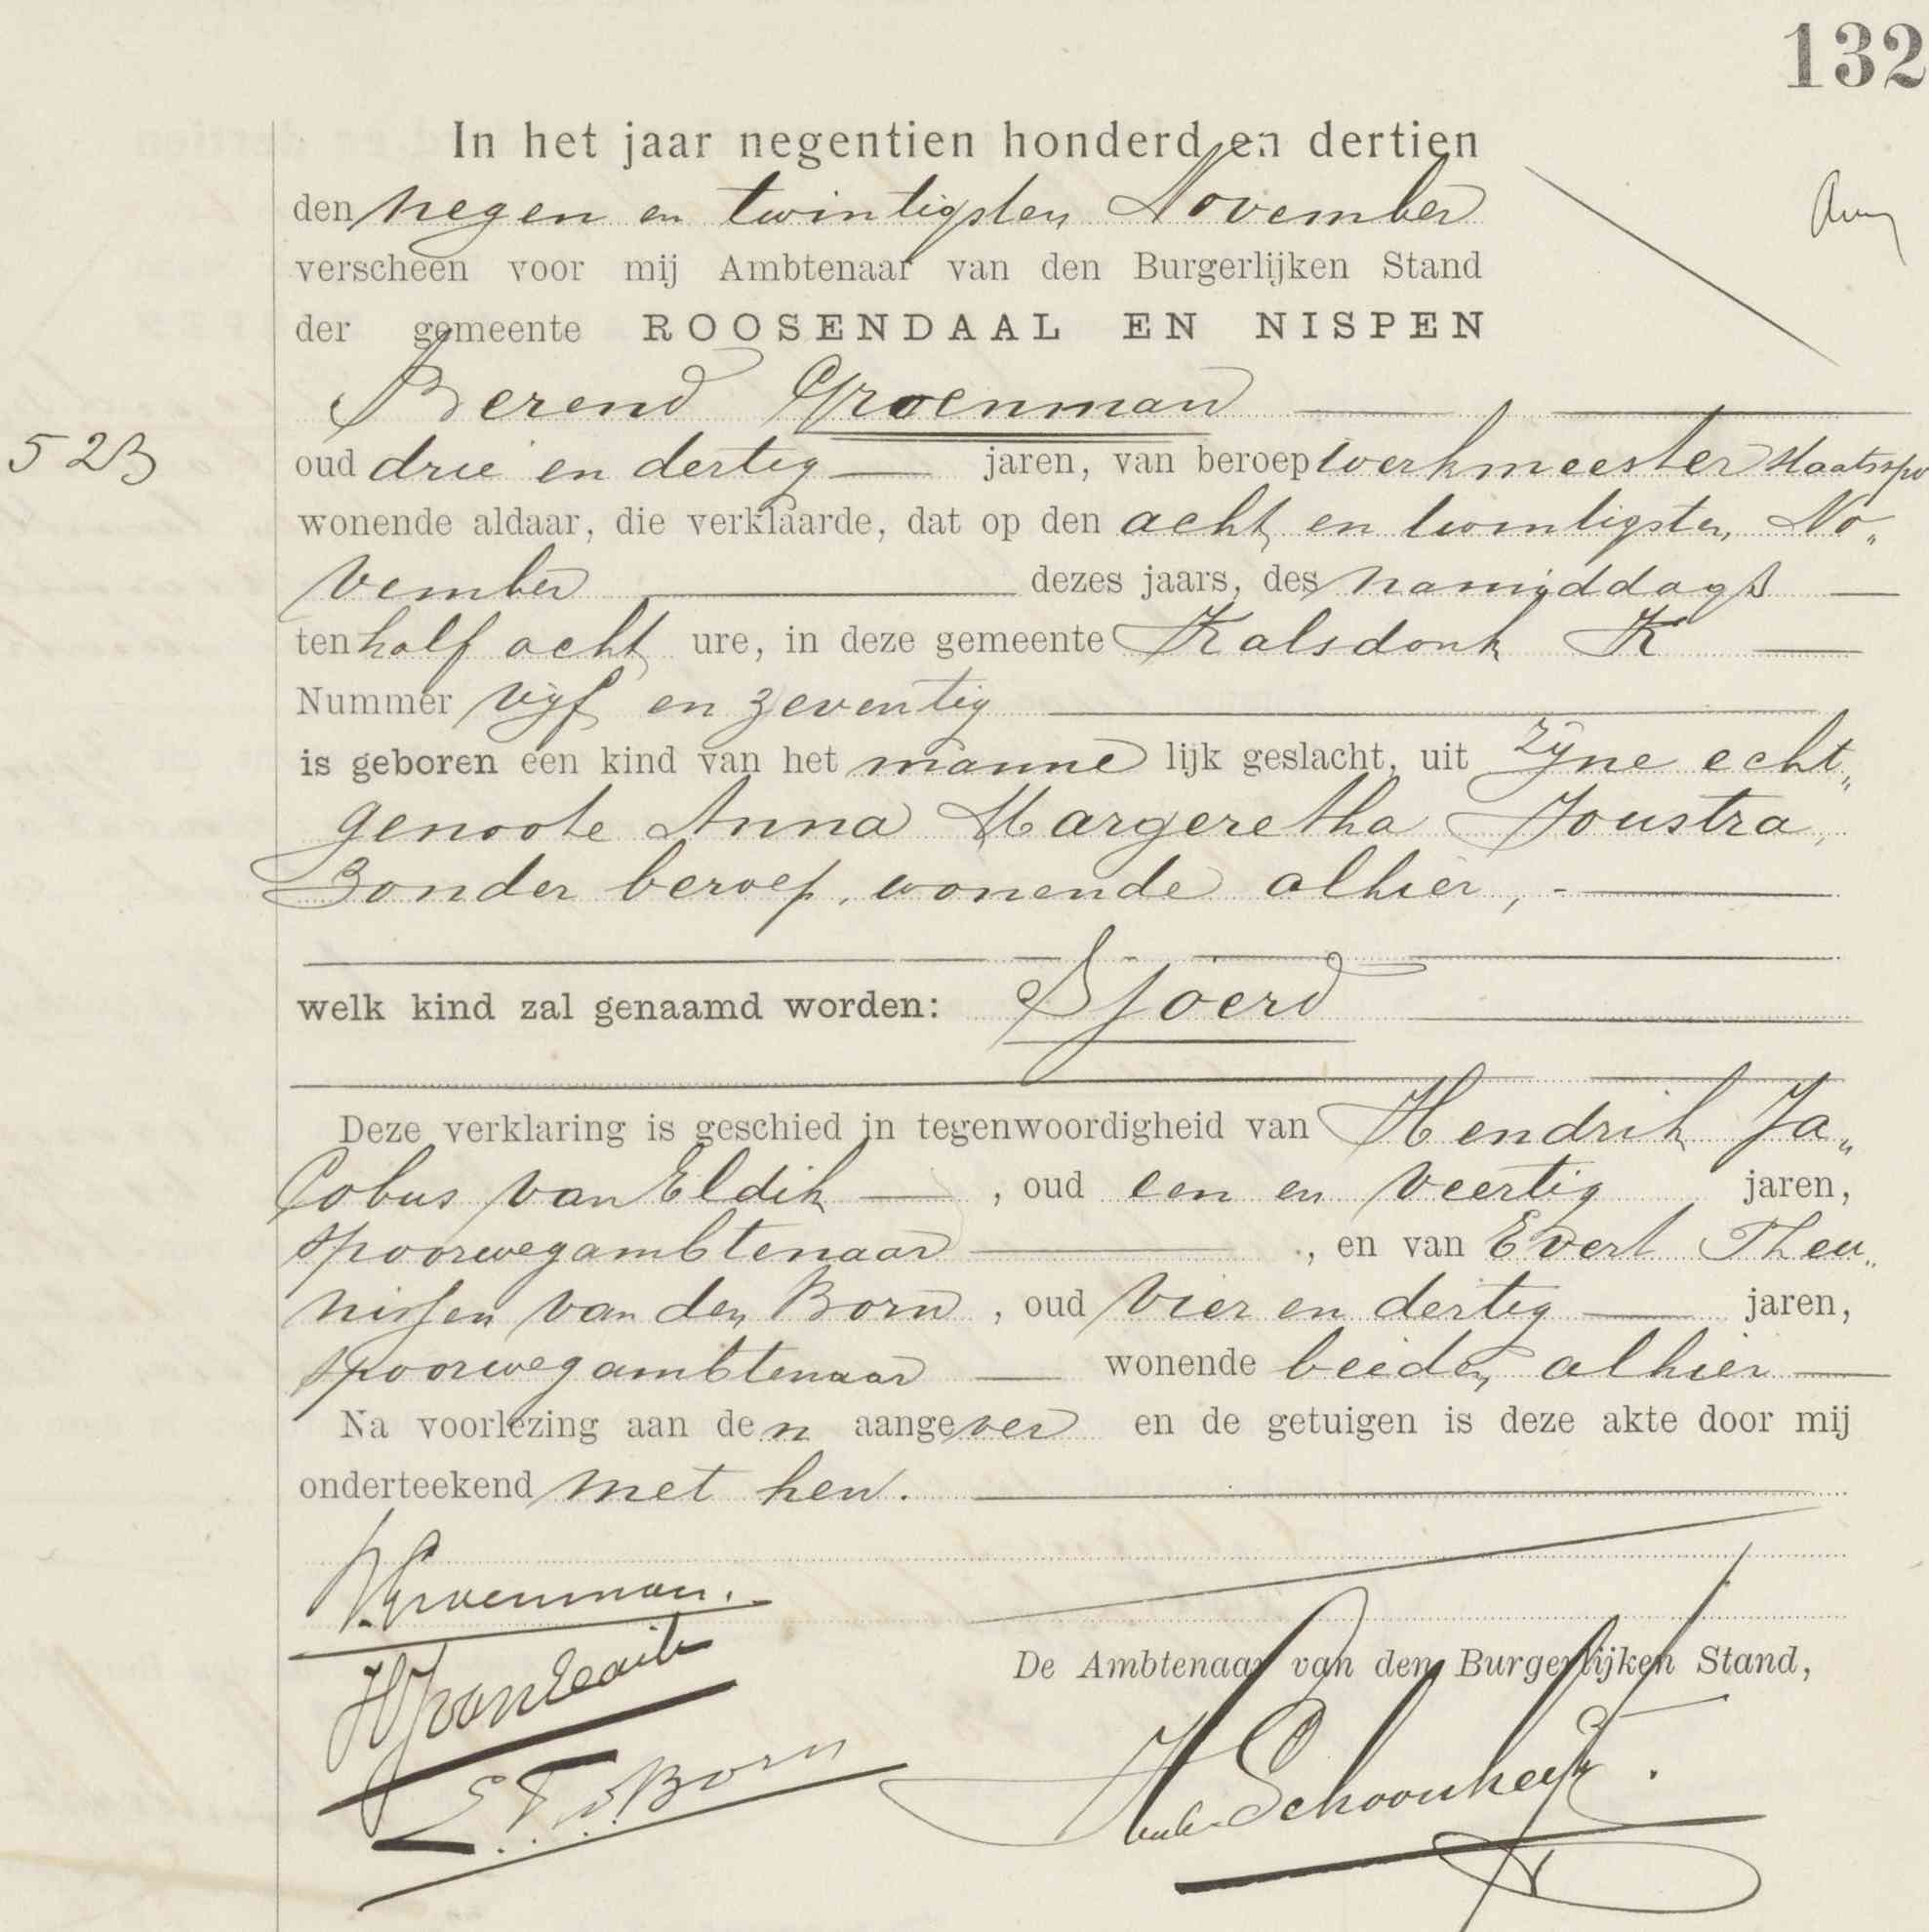 132
In het jaar negentien honderd en dertien
den negen en twintigsten November
verscheen voor mij Ambtenaar van den Burgerlijken Stand
der gemeente ROOSENDAAL EN NISPEN
Berend Groenman
523
oud drie en dertig jaren, van beroep werkmeester staatsspo
wonende aldaar, die verklaarde, dat op den acht en twintigsten No„
vember dezes jaars, des namiddags
ten half acht ure, in deze gemeente Kalsdonk K
Nummer vijf en zeventig
is geboren een kind van het manne lijk geslacht, uit zijne echt„
genoote Anna Margeretha Joustra,
zonder beroep, wonende alhier,
welk kind zal genaamd worden: Sjoerd
Deze verklaring is geschied in tegenwoordigheid van Hendrik Ja„
cobus van Eldik , oud een en veertig jaren,
spoorwegambtenaar , en van Evert Theu„
nissen van den Born , oud vier en dertig jaren,
spoorwegambtenaar wonende beiden alhier
Na voorlezing aan den aangever en de getuigen is deze akte door mij
onderteekend met hen.
B. Groenman.
HJvanEldik
De Ambtenaar van den Burgerlijken Stand,
E.T.v.d.Born
Schoonheyt.